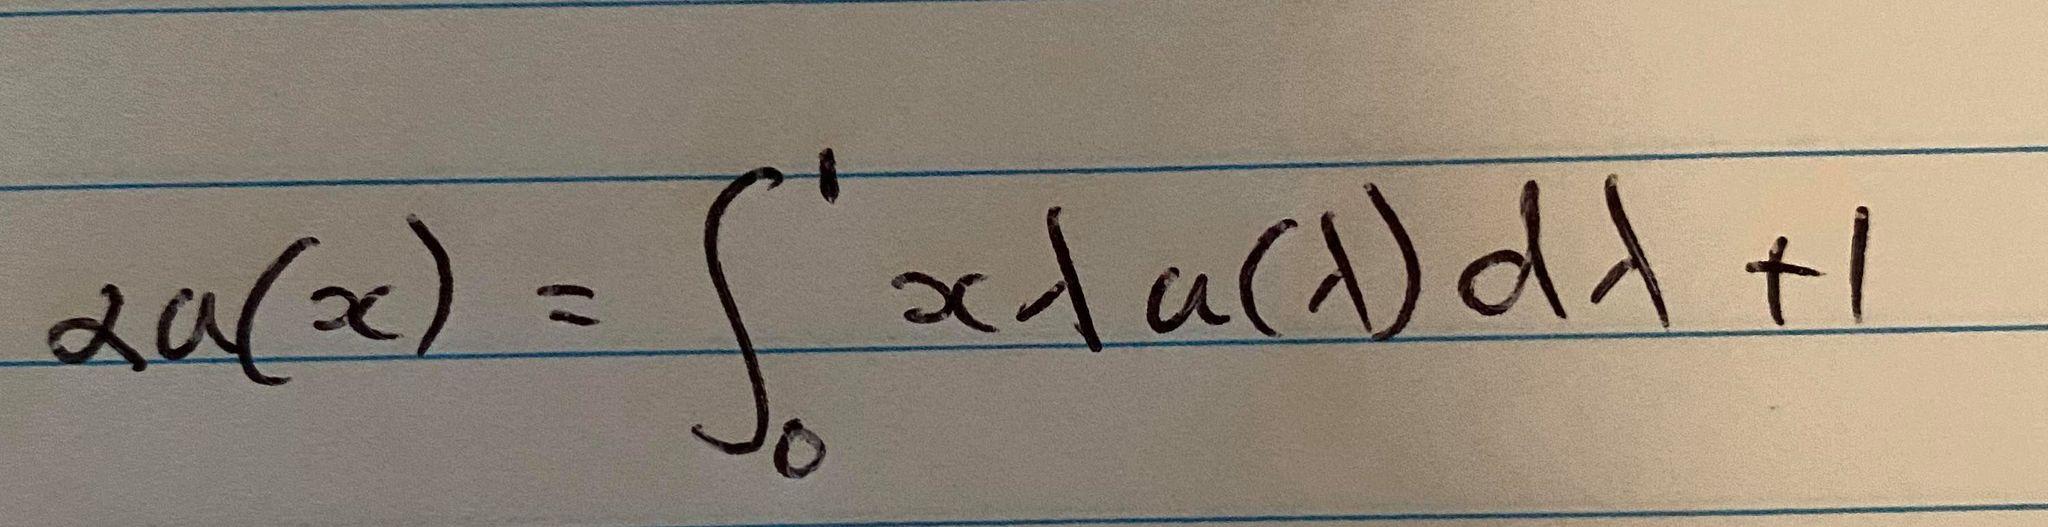 2u(x) = ∫₀¹ xλu(λ)dλ + 1